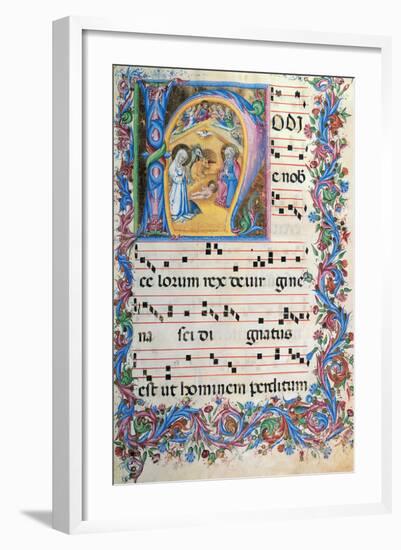 HODI
e nob
ce lorum rex de uir gine
na sci di gnatus
est ut hominem perditum